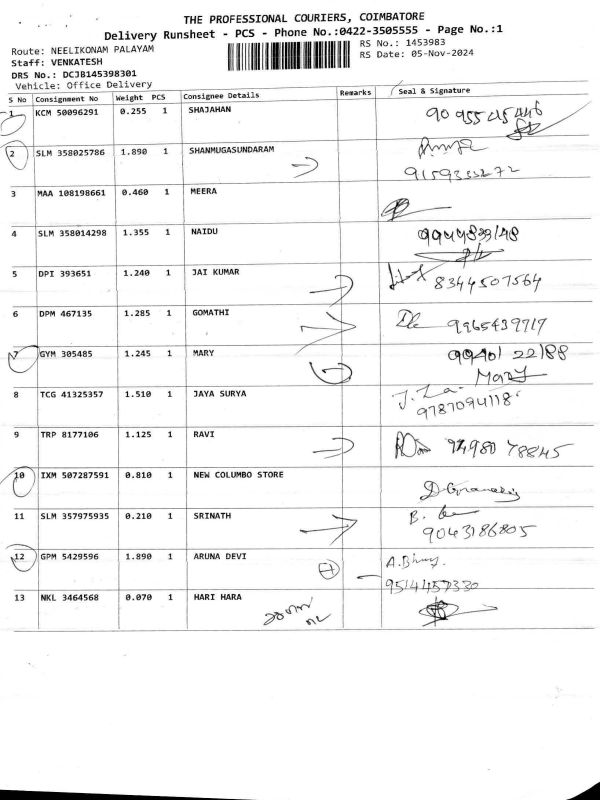 THE PROFESSIONAL COURIERS, COIMBATORE
Delivery Runsheet - PCS - Phone No.:0422-3505555 - Page No.:1
Route: NEELIKONAM PALAYAM
RS No.: 1453983
Staff: VENKATESH
RS Date: 05-Nov-2024
DRS No.: DCJB145398301
Vehicle: Office Delivery
S No Consignment No Weight PCS Consignee Details Remarks Seal & Signature
1 KCM 50096291 0.255 1 SHAJAHAN
2 SLM 358025786 1.890 1 SHANMUGASUNDARAM
3 MAA 108198661 0.460 1 MEERA
4 SLM 358014298 1.355 1 NAIDU
5 DPI 393651 1.240 1 JAI KUMAR 8344507564
6 DPM 467135 1.285 1 GOMATHI 9965439717
7 GYM 305485 1.245 1 MARY
Mary
8 TCG 41325357 1.510 1 JAYA SURYA
9787094118
9 TRP 8177106 1.125 1 RAVI
10 IXM 507287591 0.810 1 NEW COLUMBO STORE
11 SLM 357975935 0.210 1 SRINATH
9043186805
12 GPM 5429596 1.890 1 ARUNA DEVI
9514457330
13 NKL 3464568 0.070 1 HARI HARA